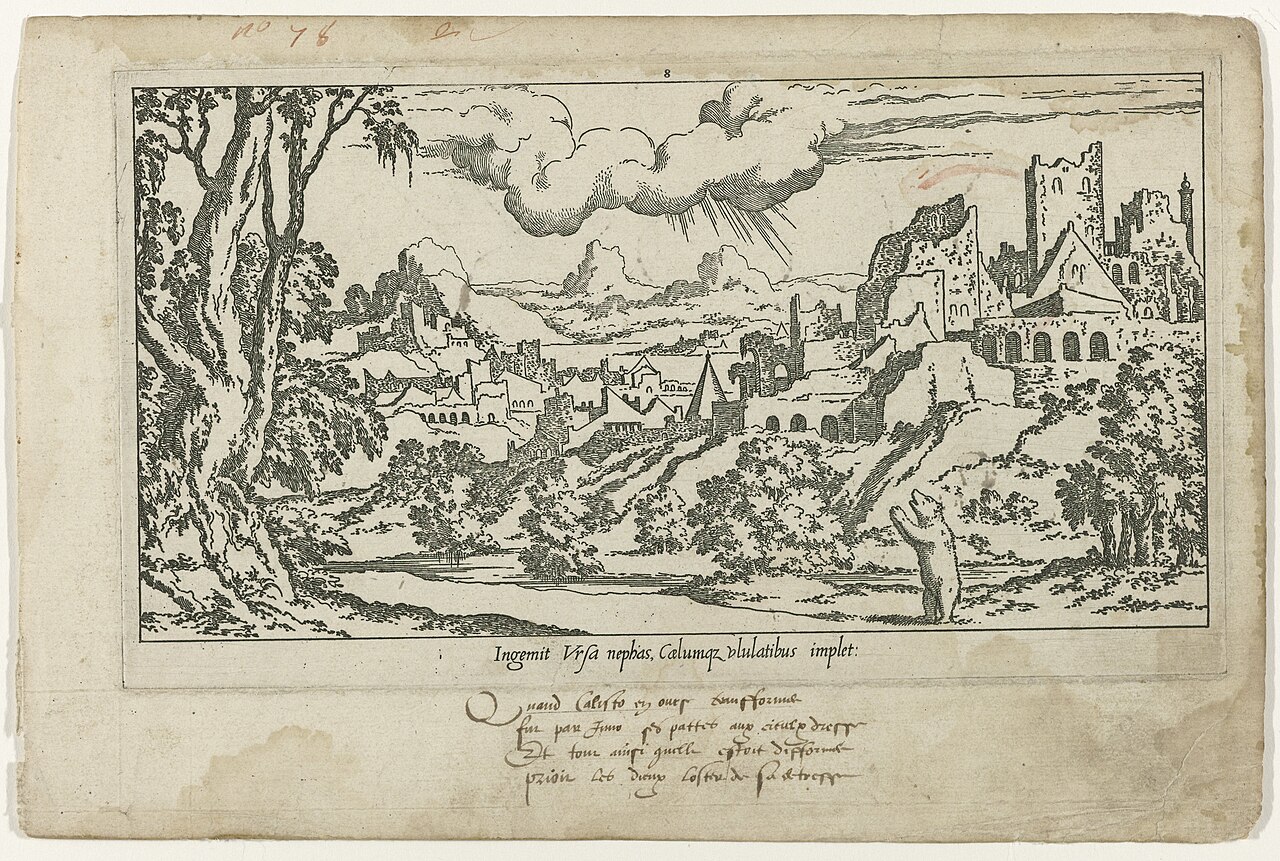 no 78
8
Ingemit Vrsa nephas, Cælumqz vlulatibus implet:
Quand Calisto en ourse transformee
fut par Juno ses pattes aux cieulx dresse
Et tout ainsi quelle estoit difforme
prioit les dieux loster de sa detresse